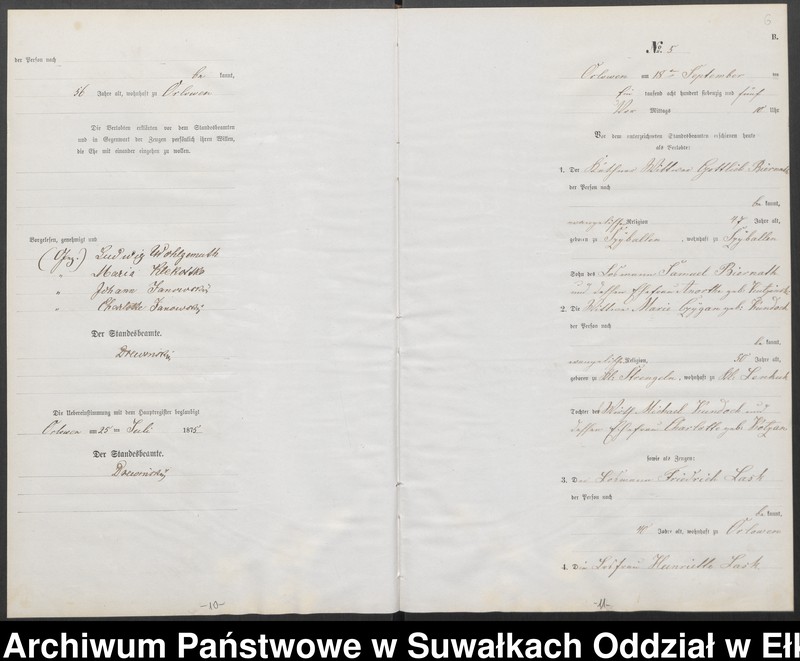 der Person nach
be kannt,
56 Jahre alt, wohnhaft zu Orlowen
Die Verlobten erklärten vor dem Standesbeamten
und in Gegenwart der Zeugen persönlich ihren Willen,
die Ehe mit einander eingehen zu wollen.
Vorgelesen, genehmigt und
(Gez.) Ludwig Wohlgemuth
" Maria
" Johann Janowski
" Charlotte Janowski
Der Standesbeamte.
Die Uebereinstimmung mit dem Hauptregister beglaubigt
Orlowen am 25 ten Juli 1875
Der Standesbeamte.
-10-
6
B.
No. 5
Orlowen am 18ten September
tausend acht hundert siebenzig und fünf
Vor Mittags Uhr
Vor dem unterzeichneten Standesbeamten erschienen heute
als Verlobte:
1. Der Käthner Wittwer Gottlieb Biernath
der Person nach
be kannt,
evangelischer Religion 47 Jahre alt,
geboren zu Sczyballen, wohnhaft zu Sczyballen
Sohn des Losmann Samuel Biernath
und dessen Ehefrau geb.
2. Die Wittwe Marie geb. Kundoch
der Person nach
be kannt,
evangelischer Religion, 50 Jahre alt,
geboren zu Kl. Strengeln, wohnhaft zu Kl. Lenkuk
Tochter des Wirth Michael Kundoch und
dessen Ehefrau Charlotte geb.
sowie als Zeugen:
3. Der Losmann Friedrich Lask
der Person nach
be kannt,
Jahre alt, wohnhaft zu Orlowen
4. Die Losfrau Henriette Lask
-11-
Archiwum Państwowe w Suwałkach Oddział w Eł